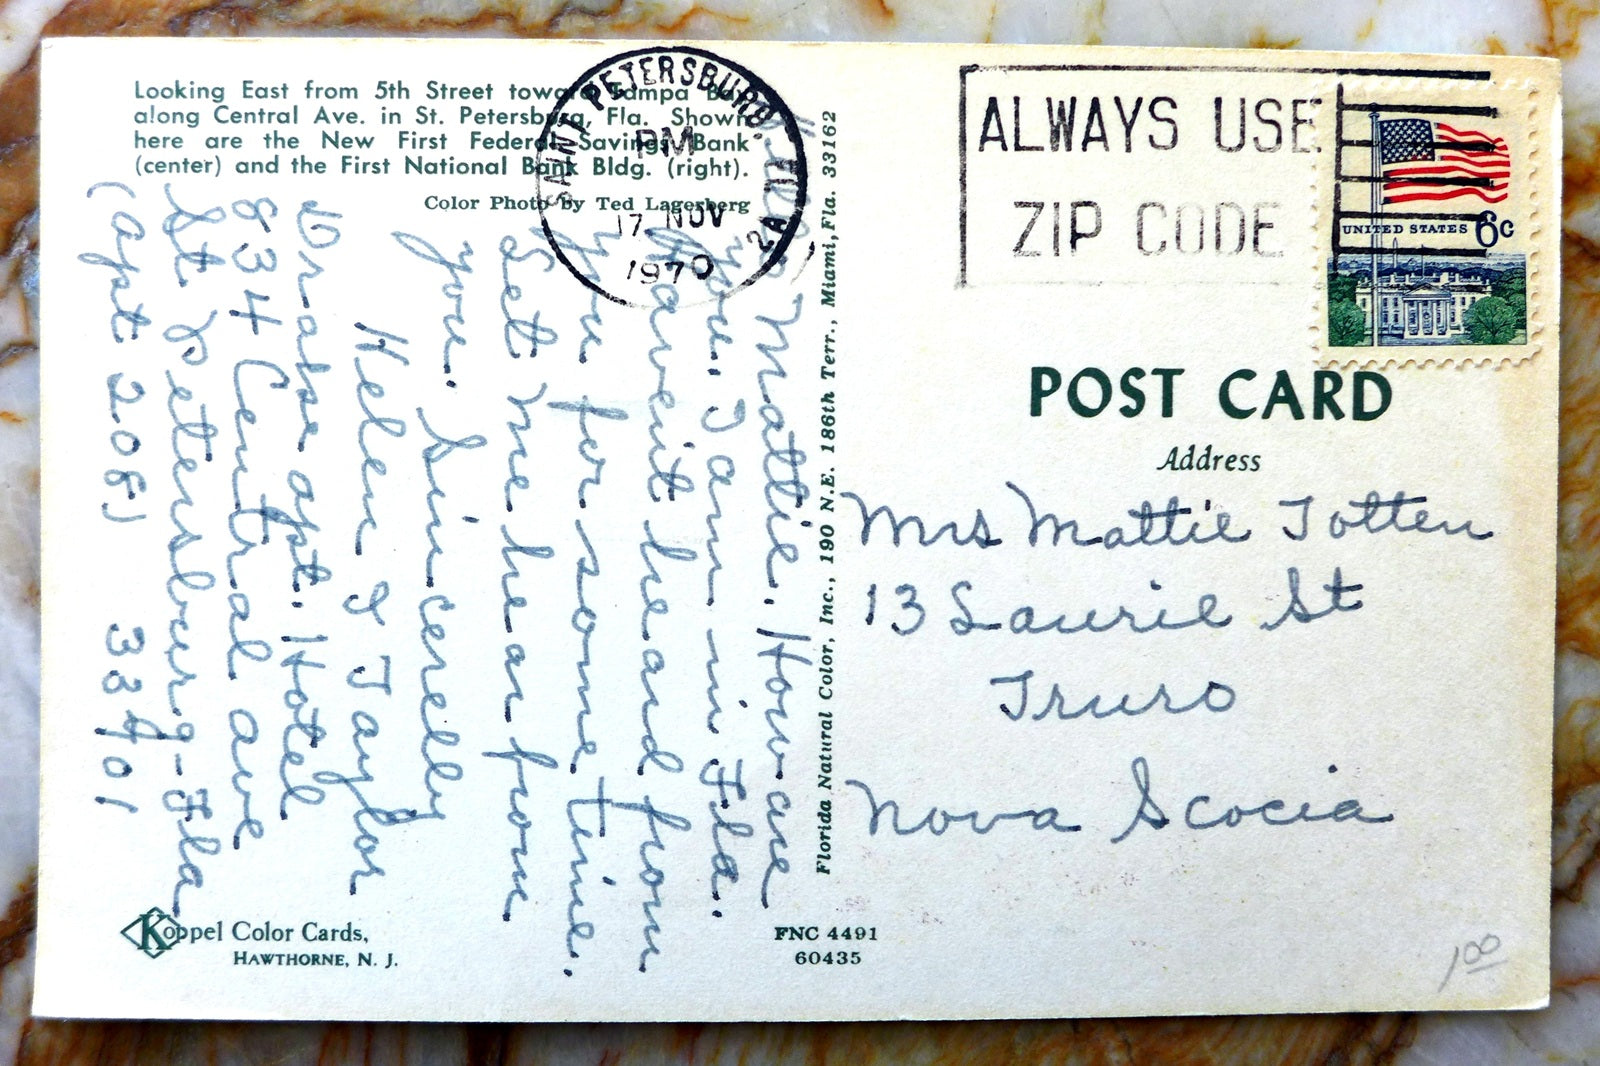 Looking East from 5th Street toward Tampa Bay
along Central Ave. in St. Petersburg, Fla. Shown
here are the New First Federal Savings Bank
(center) and the First National Bank Bldg. (right).
Color Photo by Ted Lagerberg
SAINT PETERSBURG, FLA
PM
17 NOV
1970
2A
ALWAYS USE
ZIP CODE
UNITED STATES 6c
POST CARD
Address
Mrs Mattie Totten
13 Laurie St
Truro
Nova Scocia
Hello Mattie. How are
you. I am in Fla.
Haveint heard from
you for some time.
Let me hear from
you. Sincerelly
Helen I Taylor
Drake apt. Hotel
834 Central ave
St. Petersburg-Fla
(apt 208) 33701
Florida Natural Color, Inc., 190 N.E. 186th Terr., Miami, Fla. 33162
Koppel Color Cards,
HAWTHORNE, N. J.
FNC 4491
60435
100